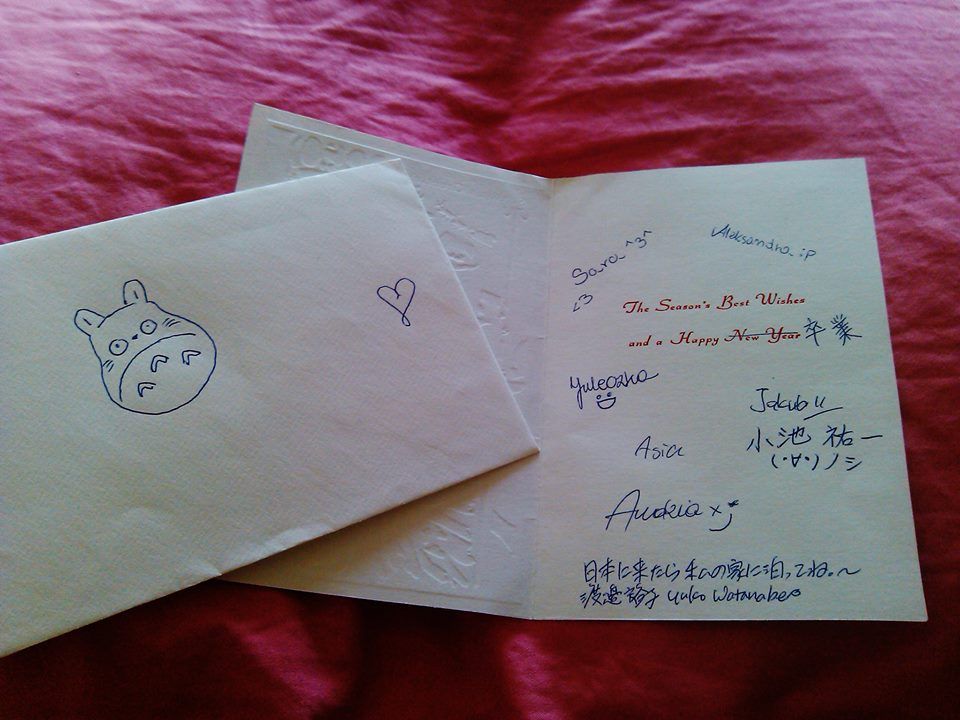 Sara ^3^
<3
Aleksandra :P
The Season's Best Wishes
and a Happy New Year 卒業
Jakub
小池 祐一
(・∀・)ノシ
Asia
日本に来たら私の家に泊ってね。〜
渡邉裕子 Yuko Watanabe